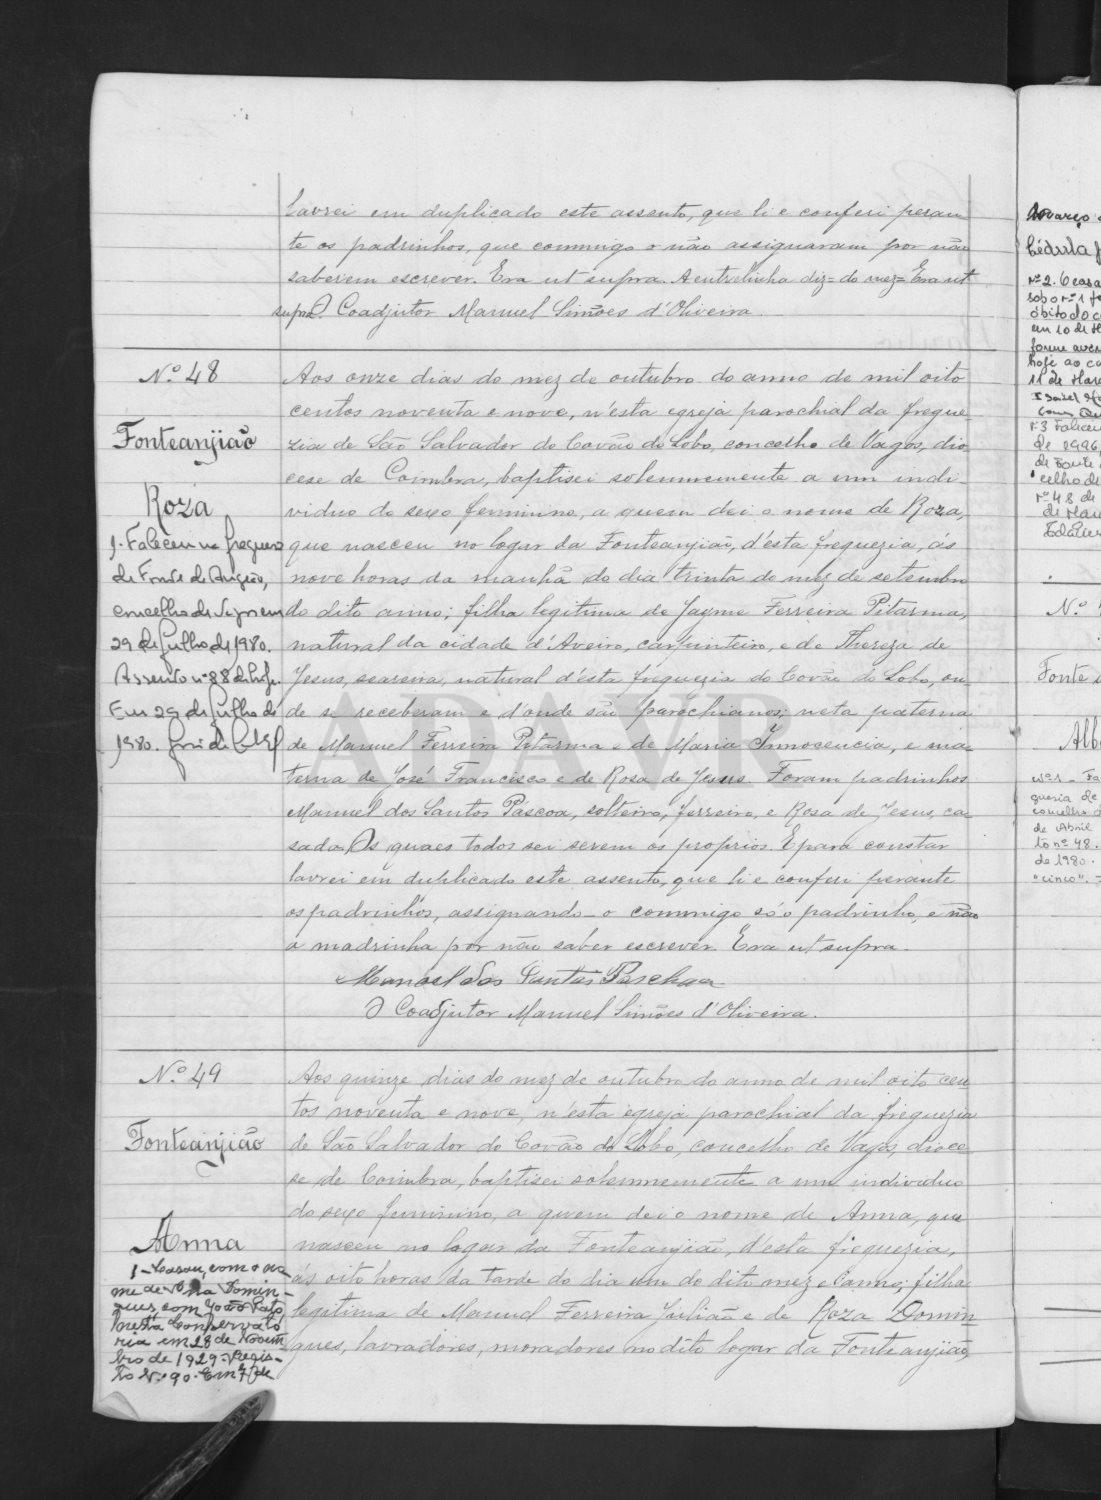 lavrei em duplicado este assento, que li e conferi peran-
te os padrinhos, que commigo o não assignaram por não
saberem escrever. Era ut supra. A entrelinha diz= do mez= Era ut
supra. O Coadjutor Manuel Simões d'Oliveira.
N.º 48
Fonteanjião
Roza
1. Faleceu na freguesia
de Fonte de Angeão,
concelho de Vagos em
29 de Julho de 1980.
Assento nº 88 de hoje.
Em 29 de Julho de
1980.
Aos onze dias do mez de outubro do anno de mil oito
centos noventa e nove, n'esta egreja parochial da fregue-
zia de São Salvador do Covão do Lobo, concelho de Vagos, dio-
cese de Coimbra, baptisei solemnemente a um indi-
viduo do sexo feminino, a quem dei o nome de Roza,
que nasceu no logar da Fonteanjião, d'esta freguezia, ás
nove horas da manhã do dia trinta do mez de setembro
do dito anno; filha legitima de Jayme Ferreira Pitarma,
natural da cidade d'Aveiro, carpinteiro, e de Thereza de
Jesus, seareira, natural d'esta freguezia do Covão do Lobo, on-
de se receberam e d'onde são parochianos; neta paterna
de Manuel Ferreira Pitarma e de Maria Innocencia, e ma-
terna de José Francisco e de Rosa de Jesus. Foram padrinhos
Manuel dos Santos Páscoa, solteiro, ferreiro, e Rosa de Jesus, ca-
sada. Os quaes todos sei serem os proprios. E para constar
lavrei em duplicado este assento, que li e conferi perante
os padrinhos, assignando-o commigo só o padrinho, e não
a madrinha por não saber escrever. Era ut supra.
Manoel dos Santos Paschoa
O Coadjutor Manuel Simões d'Oliveira.
N.º 49
Fonteanjião
Anna
1-Casou, com o no-
me de Domin-
gues, com João Pato,
nesta Conservató-
ria em 28 de Novem-
bro de 1929. Regis-
to N.º 90. Em
Aos quinze dias do mez de outubro do anno de mil oito cen-
tos noventa e nove, n'esta egreja parochial da freguezia
de São Salvador do Covão do Lobo, concelho de Vagos, dioce-
se de Coimbra, baptisei solemnemente a um individuo
do sexo feminino, a quem dei o nome de Anna, que
nasceu no logar da Fonteanjião, d'esta freguezia,
ás oito horas da tarde do dia um do dito mez e anno; filha
legitima de Manuel Ferreira Julião e de Roza Domin-
gues, lavradores, moradores no dito logar da Fonteanjião,
ADAVR
Março
Cédula
Nº2. O casa
sob o nº 1
óbito do c
em 10 de
hoje ao
11 de Mar
de 1996,
celho de
Nº 48 de
N.º
Fonte
Alb
Nº1 - Fa
guesia de
concelho
de Abril
to nº 48.
de 1980.
"cinco".